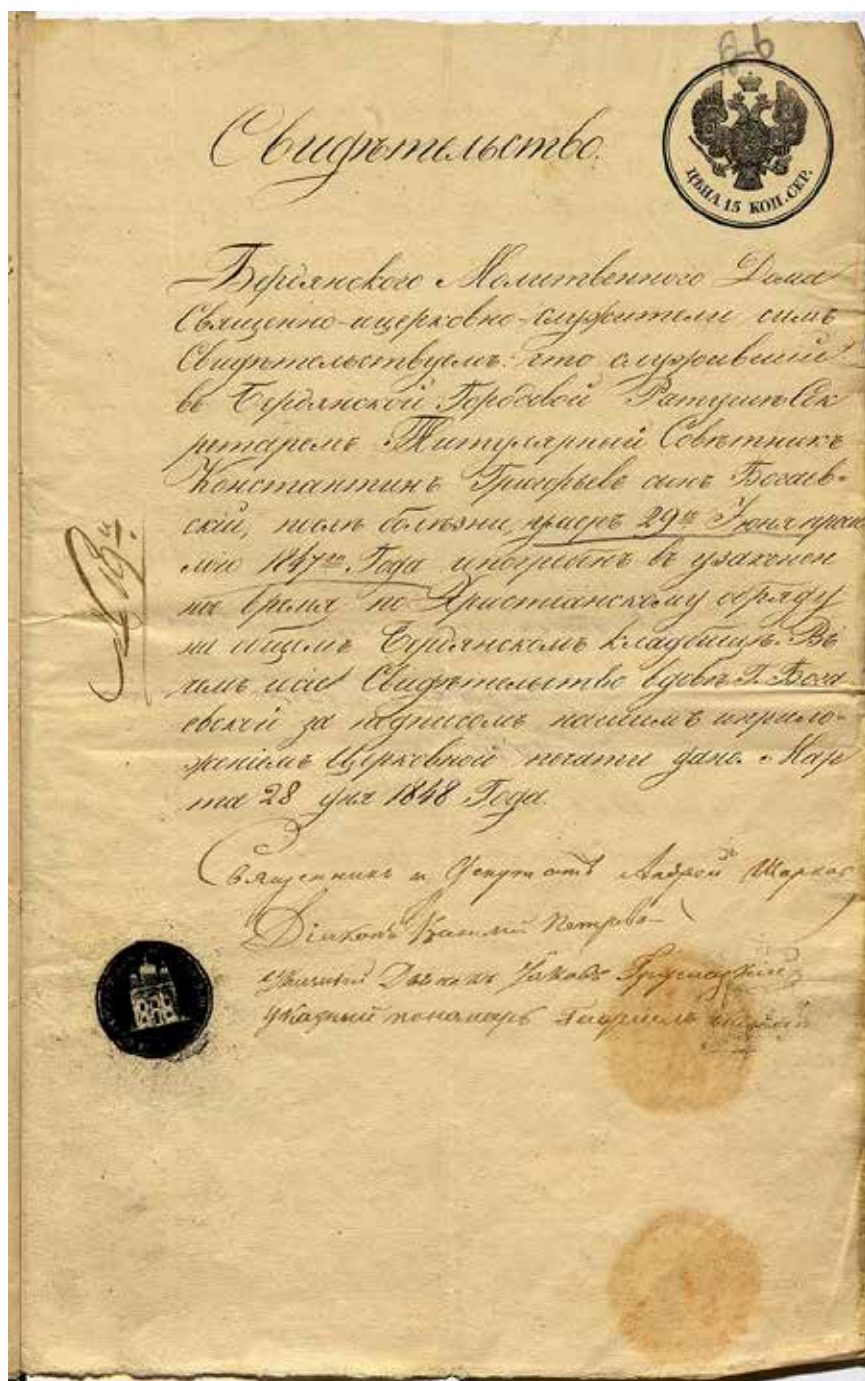 ЦѢНА 15 КОП. СЕР.
Свидѣтельство.
Бердянского Молитвенного Дома
Священно-ицерковно-служители симъ
Свидѣтельствуемъ: что служившій
въ Бердянской Городовой Ратушѣ Сек
ретаремъ Титулярный Совѣтникъ
Константинъ Григорьевъ сынъ Богаев-
скій, послѣ болѣзни, умеръ 29го Іюня прош
лаго 1847го Года ипогребенъ въ узаконен
ное время по Христіанскому обряду
на общемъ Бердянскомъ кладбищѣ. Въ
чемъ исіе Свидѣтельство вдовѣ Г. Бога
евской за подписомъ нашимъ иприло-
женіемъ Церковной печати дано. Мар
та 28 дня 1848 Года.
Священникъ и Депутатъ Андрей
Діаконъ Василій Петровъ
Дьячокъ Яковъ
Указный пономарь Гавріилъ